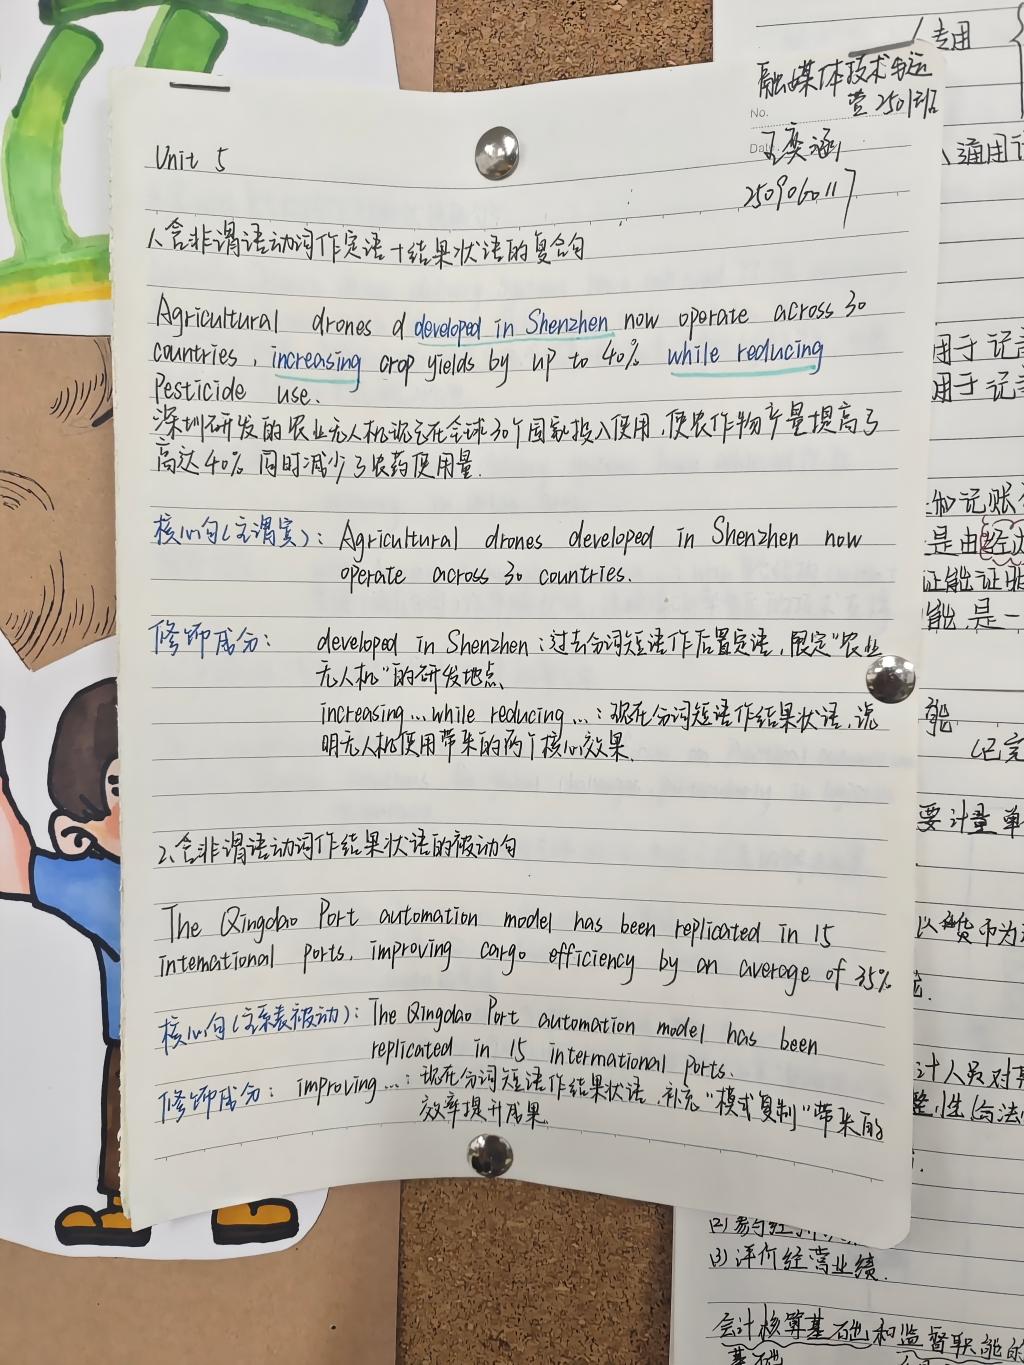 融媒体技术与运
营2501班
No.
Date
王奕涵
2509060117
Unit 5
1、含非谓语动词作定语+结果状语的复合句
Agricultural drones d developed in Shenzhen now operate across 30
countries, increasing crop yields by up to 40% while reducing
Pesticide use.
深圳研发的农业无人机现已在全球30个国家投入使用,使农作物产量提高了
高达40% 同时减少了农药使用量.
核心句(主谓宾): Agricultural drones developed in Shenzhen now
operate across 30 countries.
修饰成分: developed in Shenzhen:过去分词短语作后置定语,限定"农业
无人机"的研发地点、
increasing...while reducing...:现在分词短语作结果状语,说
明无人机使用带来的两个核心效果.
2、含非谓语动词作结果状语的被动句
The Qingdao Port automation model has been replicated in 15
international ports, improving cargo efficiency by an average of 35%
核心句(主系表被动): The Qingdao Port automation model has been
replicated in 15 international ports.
修饰成分: improving...:现在分词短语作结果状语,补充"模式复制"带来的
效率提升成果.
专用
通用
用于记
用于记
和记账
是由经
证能证明
能是一
能
要计量单
以货币为
计人员对
整性合法
(3)评价经营业绩.
会计核算基础和监督职能的
基础